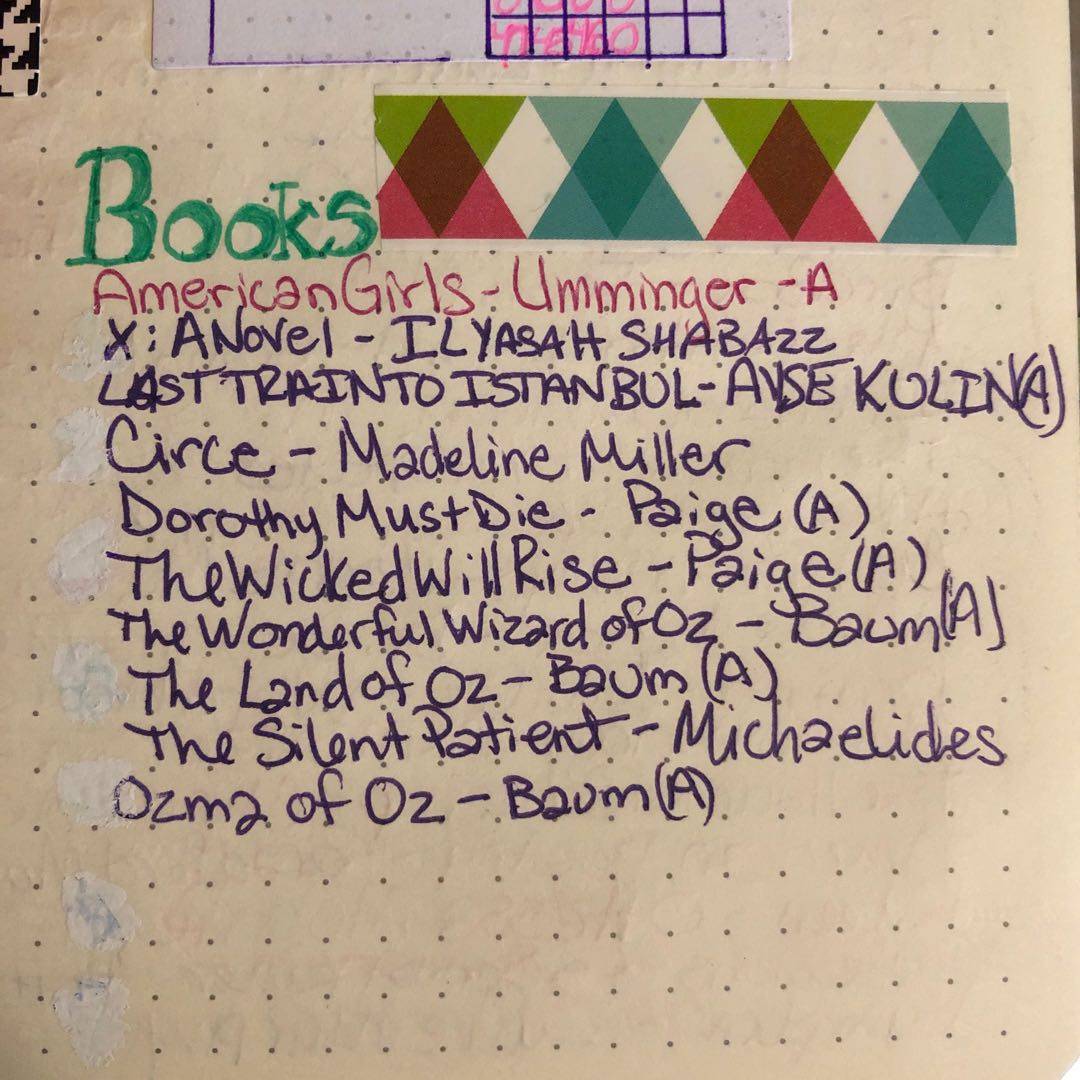 Books
American Girls - Umminger - A
X: A Novel - ILYASAH SHABAZZ
LAST TRAIN TO ISTANBUL - AYSE KULIN (A)
Circe - Madeline Miller
Dorothy Must Die - Paige (A)
The Wicked Will Rise - Paige (A)
The Wonderful Wizard of Oz - Baum (A)
The Land of Oz - Baum (A)
The Silent Patient - Michaelides
Ozma of Oz - Baum (A)